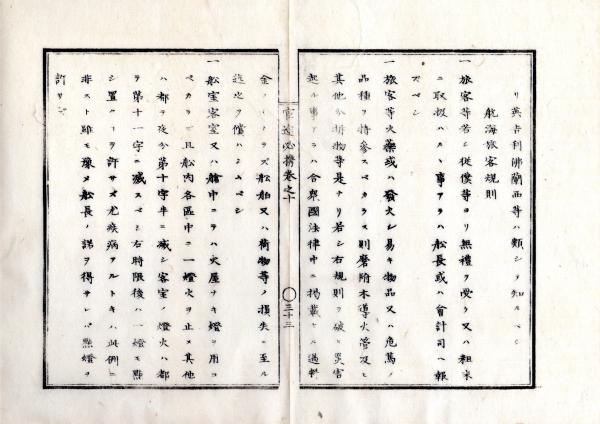 リ英吉利佛蘭西等ハ類シヲ知ルベシ
航海旅客規則
一 旅客等若シ従僕等ヨリ無禮ヲ受ケ又ハ粗末
ニ取扱ハルヽ事アラハ船長或ハ會計司ヘ報
スベシ
一 旅客等火藥或ハ發火シ易キ物品又ハ危篤ノ
品種ヲ持參スベカラス則磨附木導火管及ヒ
其他分拆物等是ナリ若シ右規則ヲ破ヒ災害
起ル事アラハ合衆國法律中ニ掲載セル過料
官途必携巻之十
〇三十三
金ノミナラズ船舶又ハ荷物等ノ損失ニ至ル
迄之ヲ償ハシムベシ
一 船室客室又ハ艙中ニテハ火屋ナキ燈ヲ用ユ
ベカラズ且船内各區中ニ一燈火ヲ止メ其他
ハ都テ夜分第十字半ニ滅シ客室ノ燈火ハ都
テ第十一字ニ滅スベシ右時限後ハ一燈モ點
シ置クヿヲ許サズ尤疾病アルトキハ此例ニ
非スト雖モ豫メ船長ノ諾ヲ得サレバ點燈ヲ
許サズ